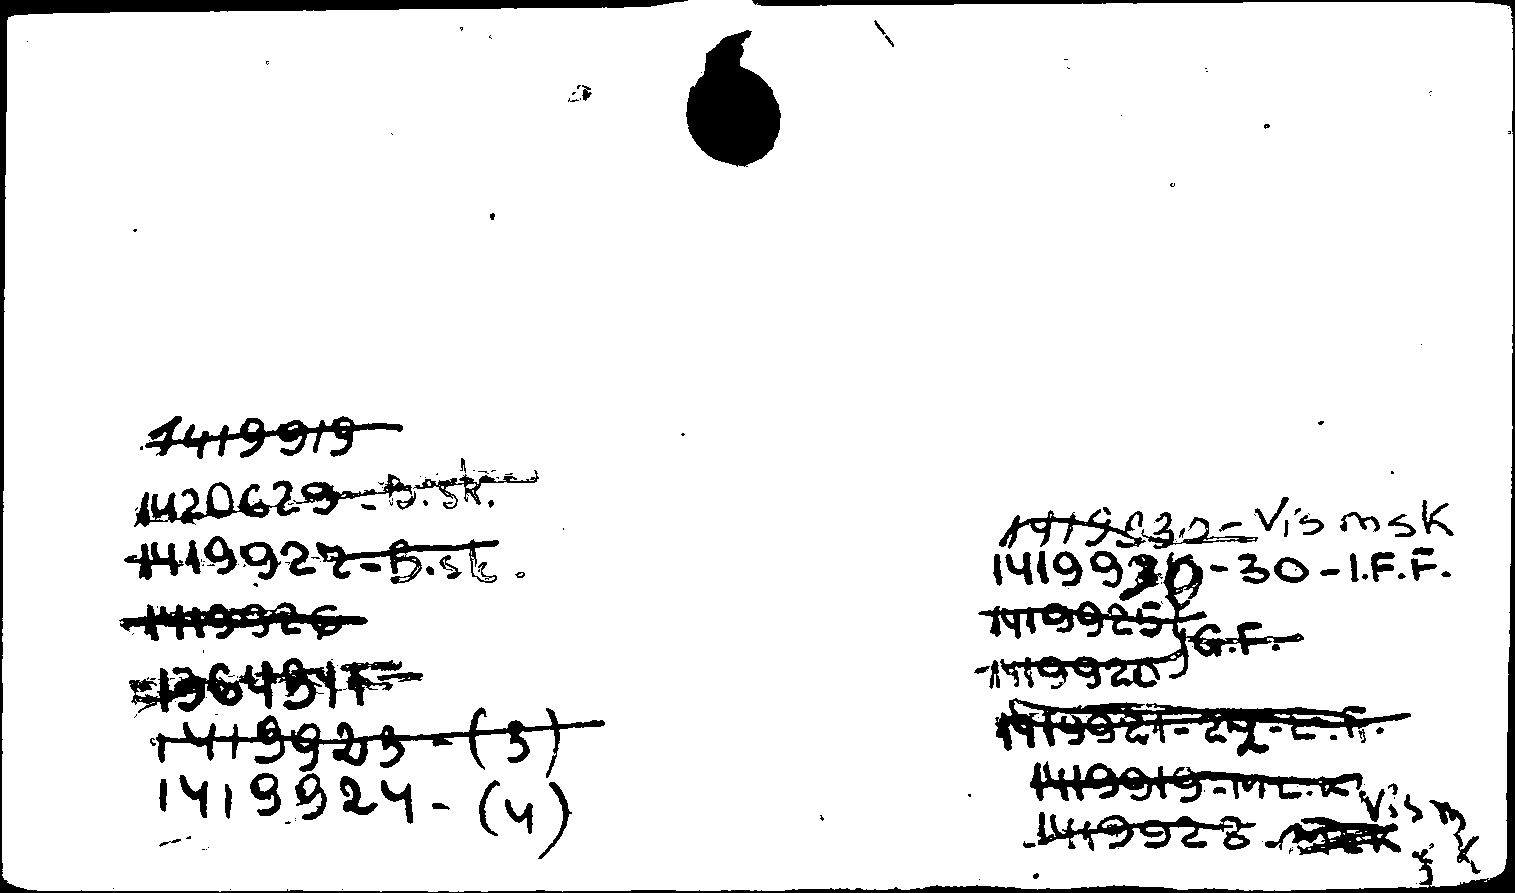 1419919
1420629 - B.sk.
1419927 - B.sk.
1419926
1419923 - (3)
1419924 - (4)
1419930 - Vis msk
1419930 - 30 - I.F.F.
1419925
1419920 } G.F.
1419921 - 24 -
1419919 -
1419928 - Vis m